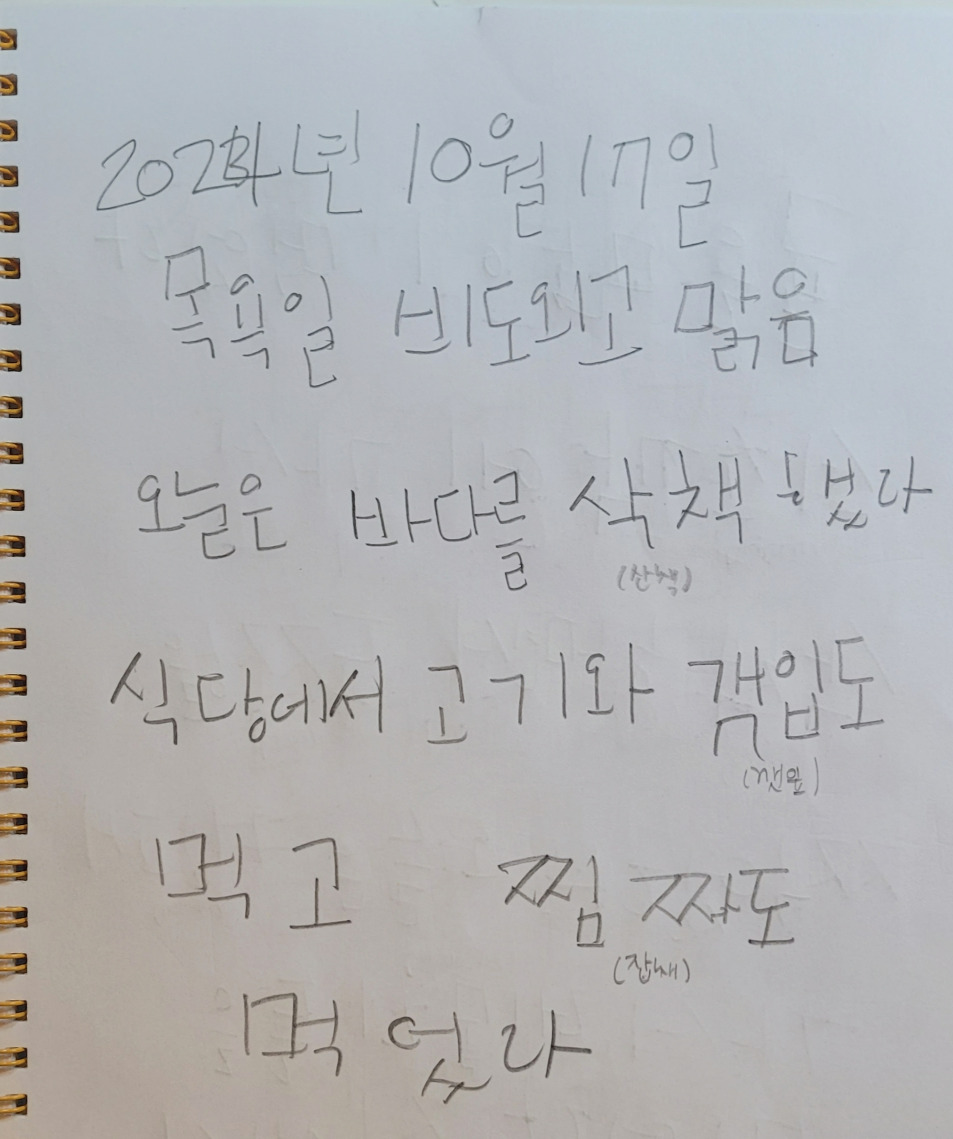 2024년 10월 17일
목욕일 비도외고 맑음
오늘은 바다를 삭책 했다
(산책)
식당에서 고기와 객입도
(깻잎)
먹고 찜짜도
(잡채)
먹엇다